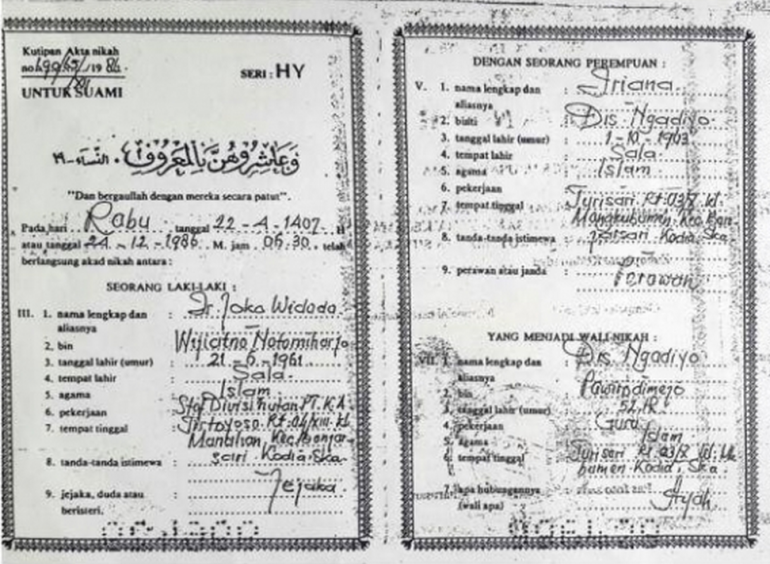 Kutipan Akta nikah
no. 690/65/XII/19 86
SERI : HY
UNTUK SUAMI
وَعَاشِرُوهُنَّ بِالْمَعْرُوفِ. النساء - ١٩
"Dan bergaullah dengan mereka secara patut".
Pada hari Rabu tanggal 22 - 4 - 1407 H
atau tanggal 24 - 12 - 1986 M. jam 06.30 telah
berlangsung akad nikah antara :
SEORANG LAKI-LAKI :
III. 1. nama lengkap dan : Ir Joko Widodo
aliasnya
2. bin : Wijiatno Notomiharjo
3. tanggal lahir (umur) : 21 - 6 - 1961
4. tempat lahir : Sala
5. agama : Islam
6. pekerjaan : Staf Divisi hutan PT. K.A
7. tempat tinggal : Tirtoyoso Rt 04/XIII kl
Manahan, Kec Banjar-
sari Kodia Ska
8. tanda-tanda istimewa :
9. jejaka, duda atau : Jejaka
beristeri.
DENGAN SEORANG PEREMPUAN :
V. 1. nama lengkap dan : Iriana
aliasnya
2. binti : Drs Ngadiyo
3. tanggal lahir (umur) : 1 - 10 - 1963
4. tempat lahir : Sala
5. agama : Islam
6. pekerjaan :
7. tempat tinggal : Jurisari Rt 03/ kl
Mangkubumen, Kec Ban
jarsari Kodia Ska
8. tanda-tanda istimewa :
9. perawan atau janda : Perawan
YANG MENJADI WALI-NIKAH :
VII. 1. nama lengkap dan : Drs Ngadiyo
aliasnya
2. bin : Pawirodimejo
3. tanggal lahir (umur) : 52
4. pekerjaan : Guru
5. agama : Islam
6. tempat tinggal : Jurisari Rt 03/
bumen Kodia Ska
7. apa hubungannya : Ayah
(wali apa)